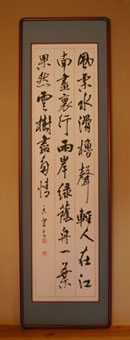 風柔水滑櫓聲輕人在江
南畫裏行兩岸綠蔭舟一葉
果然雲樹盡多情